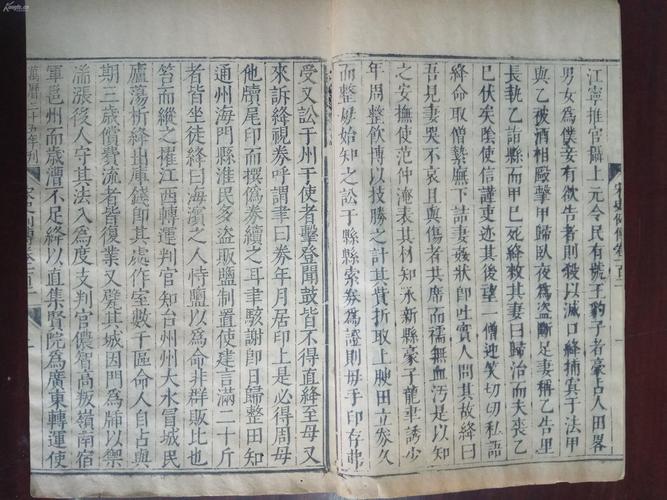 宋史列傳卷一百二
江寧推官攝上元令民有號王豹子者豪占人田畧
男女為僕妾有欲告者則殺以滅口絳捕寘于法甲
與乙被酒相毆擊甲歸臥夜為盜斷足妻稱乙告里
長執乙詣縣而甲已死絳敕其妻曰歸治而夫喪乙
已伏矣陰使信謹吏迹其後望一僧迎笑切切私語
絳命取僧縶廡下詰妻姦狀即吐實人問其故絳曰
吾見妻哭不哀且與傷者共席而襦無血汚是以知
之安撫使范仲淹表其材知永新縣豪子龍聿誘少
年周整飲博以技勝之計其貲折取上腴田立券久
而整母始知之訟于縣縣索券為證則母手印存弗
受又訟于州于使者擊登聞鼓皆不得直絳至母又
來訴絳視券呼謂聿曰券年月居印上是必得周母
他牘尾印而撰偽券續之耳聿駭謝即日歸整田知
通州海門縣淮民多盜取鹽制置使建言滿二十斤
者皆坐徒絳曰海濱之人恃鹽以為命非群販比也
笞而縱之擢江西轉運判官知台州州大水冒城民
廬蕩析絳出庫錢即其處作室數千區命人自占與
期三歲償費流者皆復業又甓其城因門為牐以禦
湍漲後人守其法入為度支判官儂智高叛嶺南宿
軍邕州而歲漕不足絳以直集賢院為廣東轉運使
萬曆二十五年刊 宋史列傳卷一百二